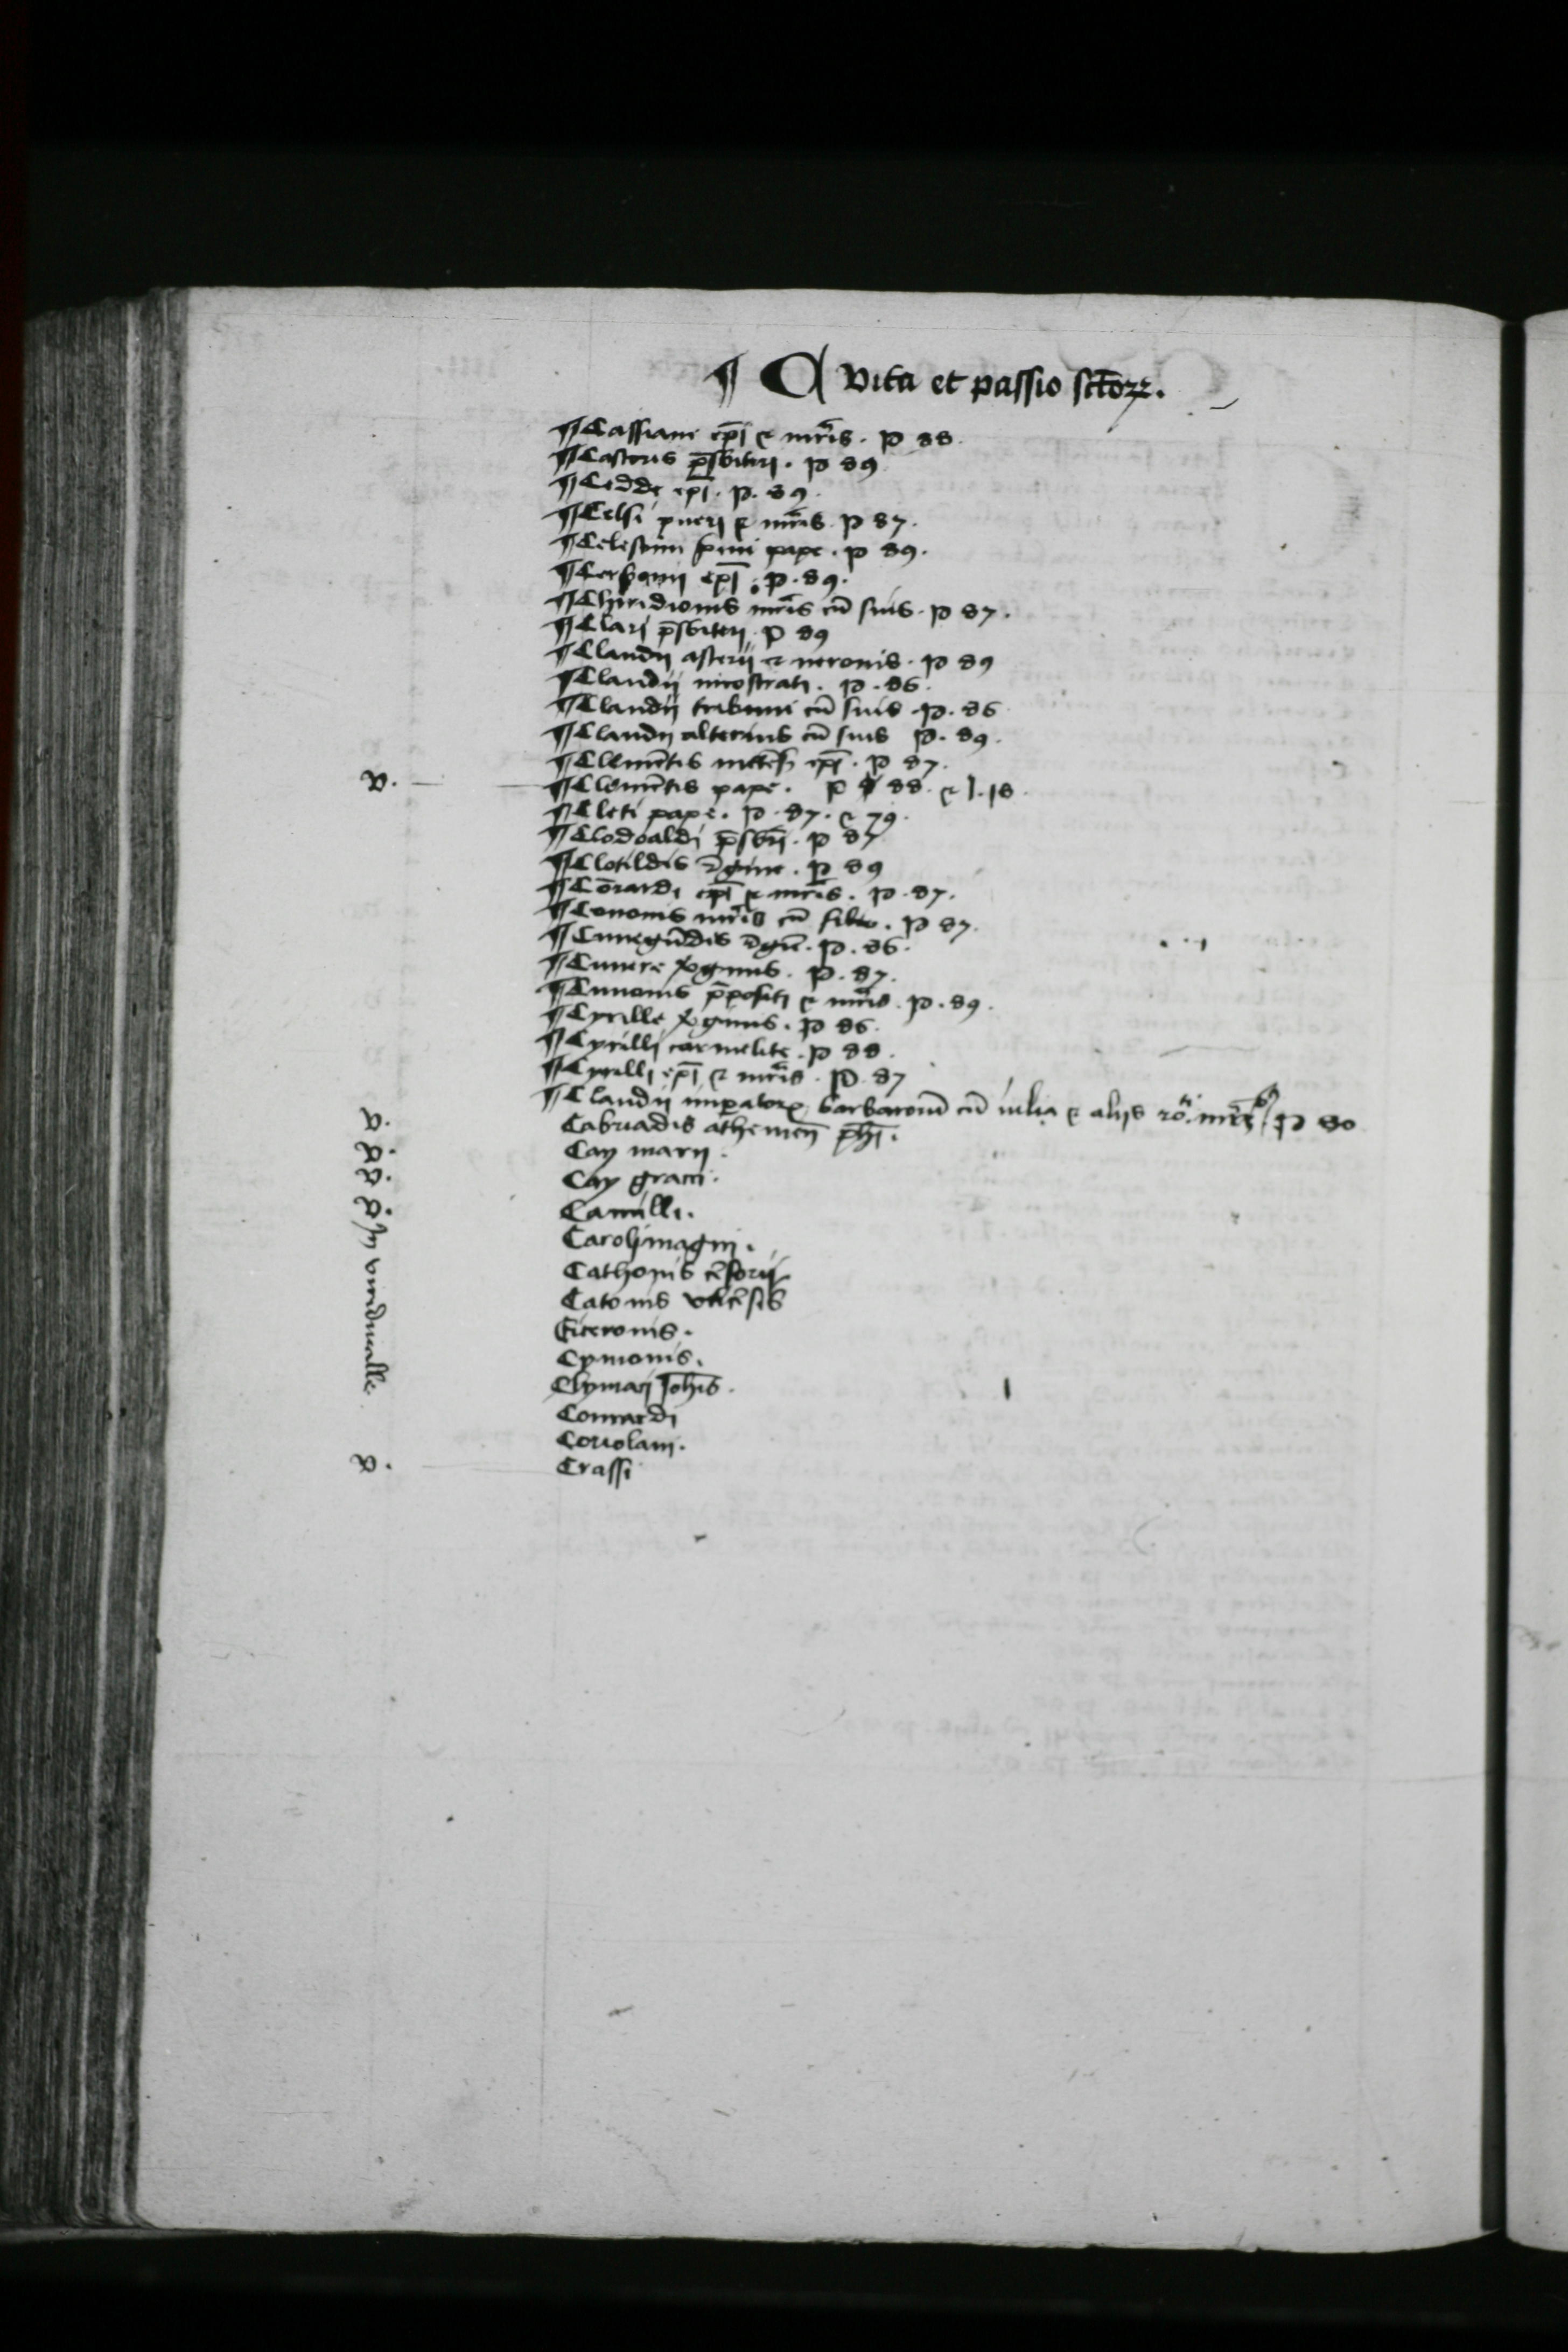 ¶ C vita et passio sctorꝝ.
¶ Cassiani ep̄i ⁊ mr̄is. p 88.
¶ Castoris p̄sbiteri. p 89
¶ Cedde ep̄i. p. 89.
¶ Celsi pueri ⁊ mr̄is. p 87.
¶ Celestini primi pape. p 89.
¶ Cerbonii ep̄i. p. 89.
¶ Chiridionis mr̄is cū suis. p 87.
¶ Clari p̄sbiteri p 89
¶ Claudii asterii ⁊ neronis. p 89
¶ Claudii nicostrati. p. 86.
¶ Claudii tribuni cū suis. p. 86
¶ Claudii alterius cū suis p. 89.
¶ Clemētis meteñ ep̄i. p 87.
v. ¶ Clemētis pape. p 88. ⁊ l. 18.
¶ Cleti pape. p. 87. ⁊ 79.
¶ Clodoaldi p̄sbr̄i. p 87
¶ Clotildis p 89
¶ Cōrardi ep̄i ⁊ mr̄is. p. 87.
¶ Cononis mr̄is cū filio. p 87.
¶ Cunegūdis p. 86.
¶ Cunere v̓ginis. p. 87.
¶ Cunonis p̄positi ⁊ mr̄is. p. 89.
¶ Cyrille v̓ginis. p 86.
¶ Cyrilli carmelite. p 88.
¶ Cyrilli ep̄i ⁊ mr̄is. p. 87
¶ Claudii barbaronū cū iulia ⁊ aliis p 80
v. Cabriadis atheneñ ph̄i.
v. Caÿ marii.
v. Caÿ gracci.
v. Camilli.
Caroli magni.
Cathonis cēsorii
Catonis vticēsis
Ciceronis.
Cymonis.
Clymaci Joh̄is.
Conrardi
Coriolani.
v. Crassi
In viriduualle